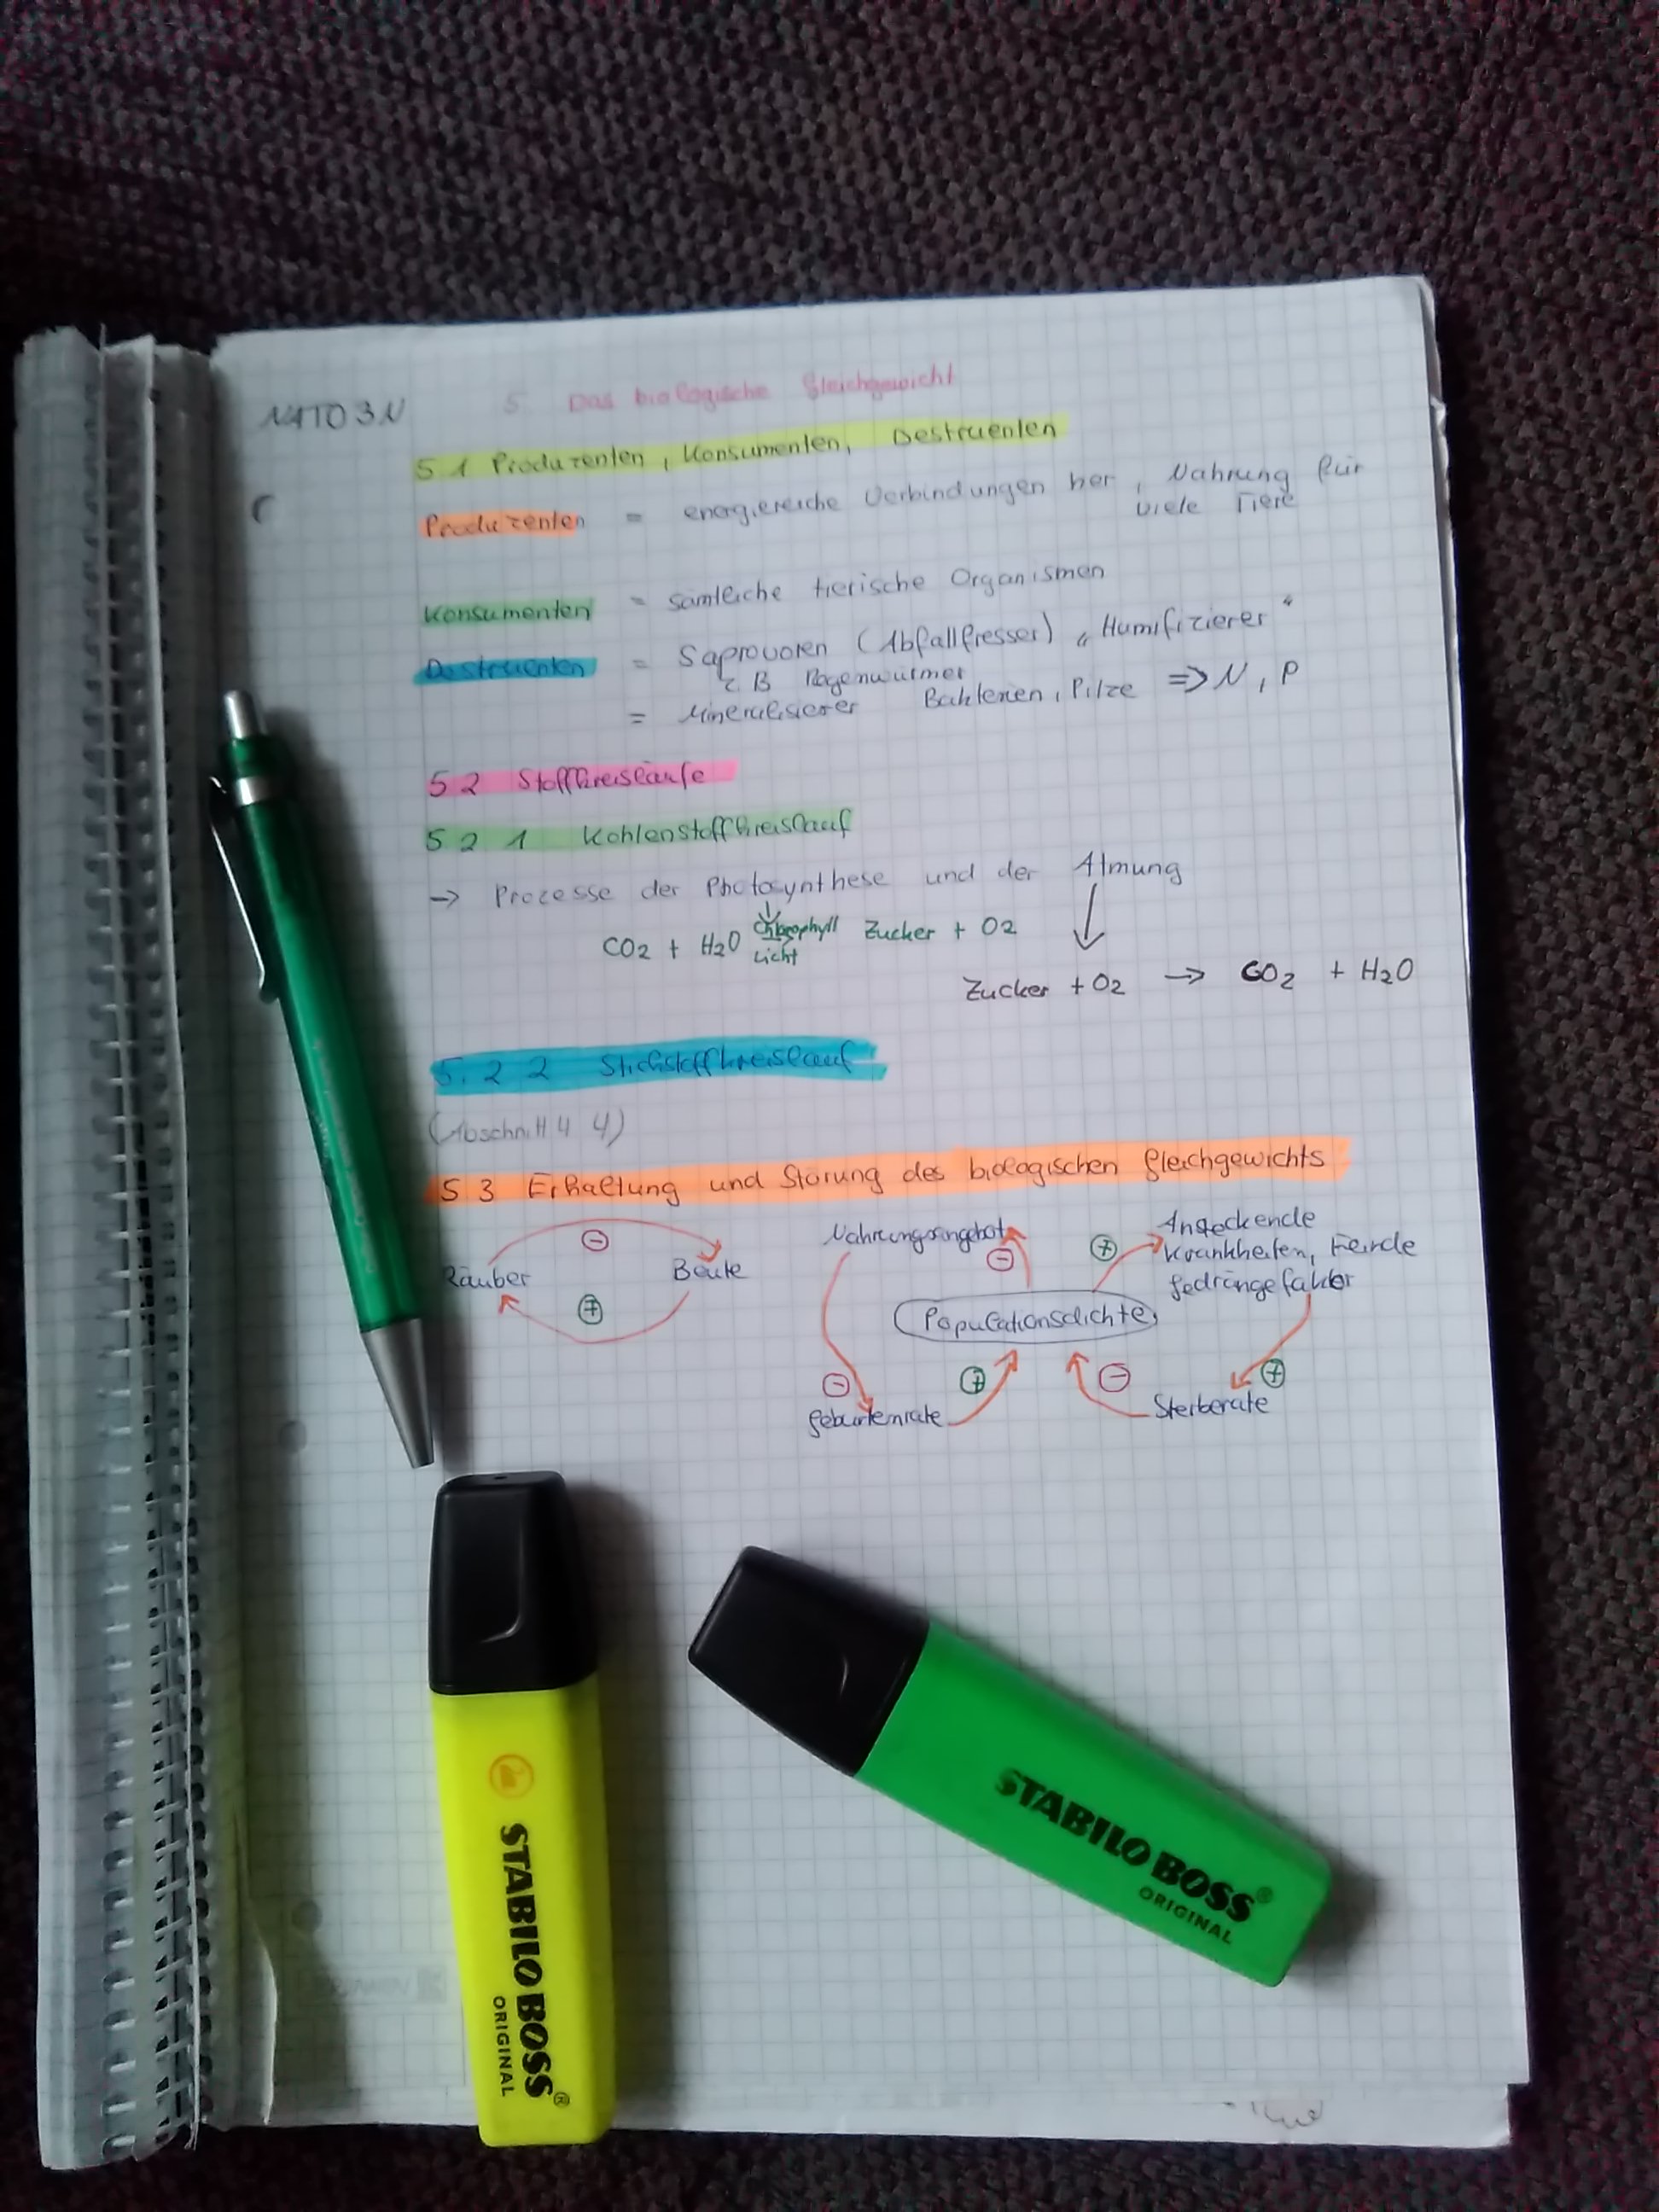 NATO 3N
5 Das biologische Gleichgewicht
5.1 Produzenten, Konsumenten, Destruenten
Produzenten = energiereiche Verbindungen her, Nahrung für
viele Tiere
Konsumenten = sämtliche tierische Organismen
Destruenten = Saprovoren (Abfallfresser) „Humifizierer“
z.B Regenwürmer
= Mineralisierer Bakterien, Pilze => N, P
5.2 Stoffkreisläufe
5.2.1 Kohlenstoffkreislauf
-> Prozesse der Photosynthese und der Atmung
CO2 + H2O Chlorophyll Zucker + O2
Licht
Zucker + O2 -> CO2 + H2O
5.2.2 Stickstoffkreislauf
(Abschnitt 4.4)
5.3 Erhaltung und Störung des biologischen Gleichgewichts
Räuber - Beute
+
Nahrungsangebot - + Ansteckende
Krankheiten, Feinde
Gedrängefaktor
Populationsdichte
- + - +
Geburtenrate Sterberate
STABILO BOSS®
ORIGINAL
STABILO BOSS®
ORIGINAL